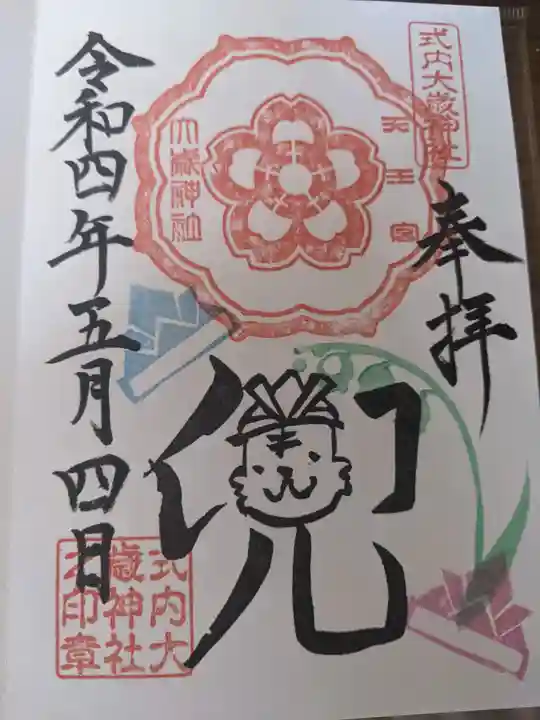 式内大歳神社
奉拝
天王宮
大歳神社
兜
令和四年五月四日
式内大
歳神社
之印章